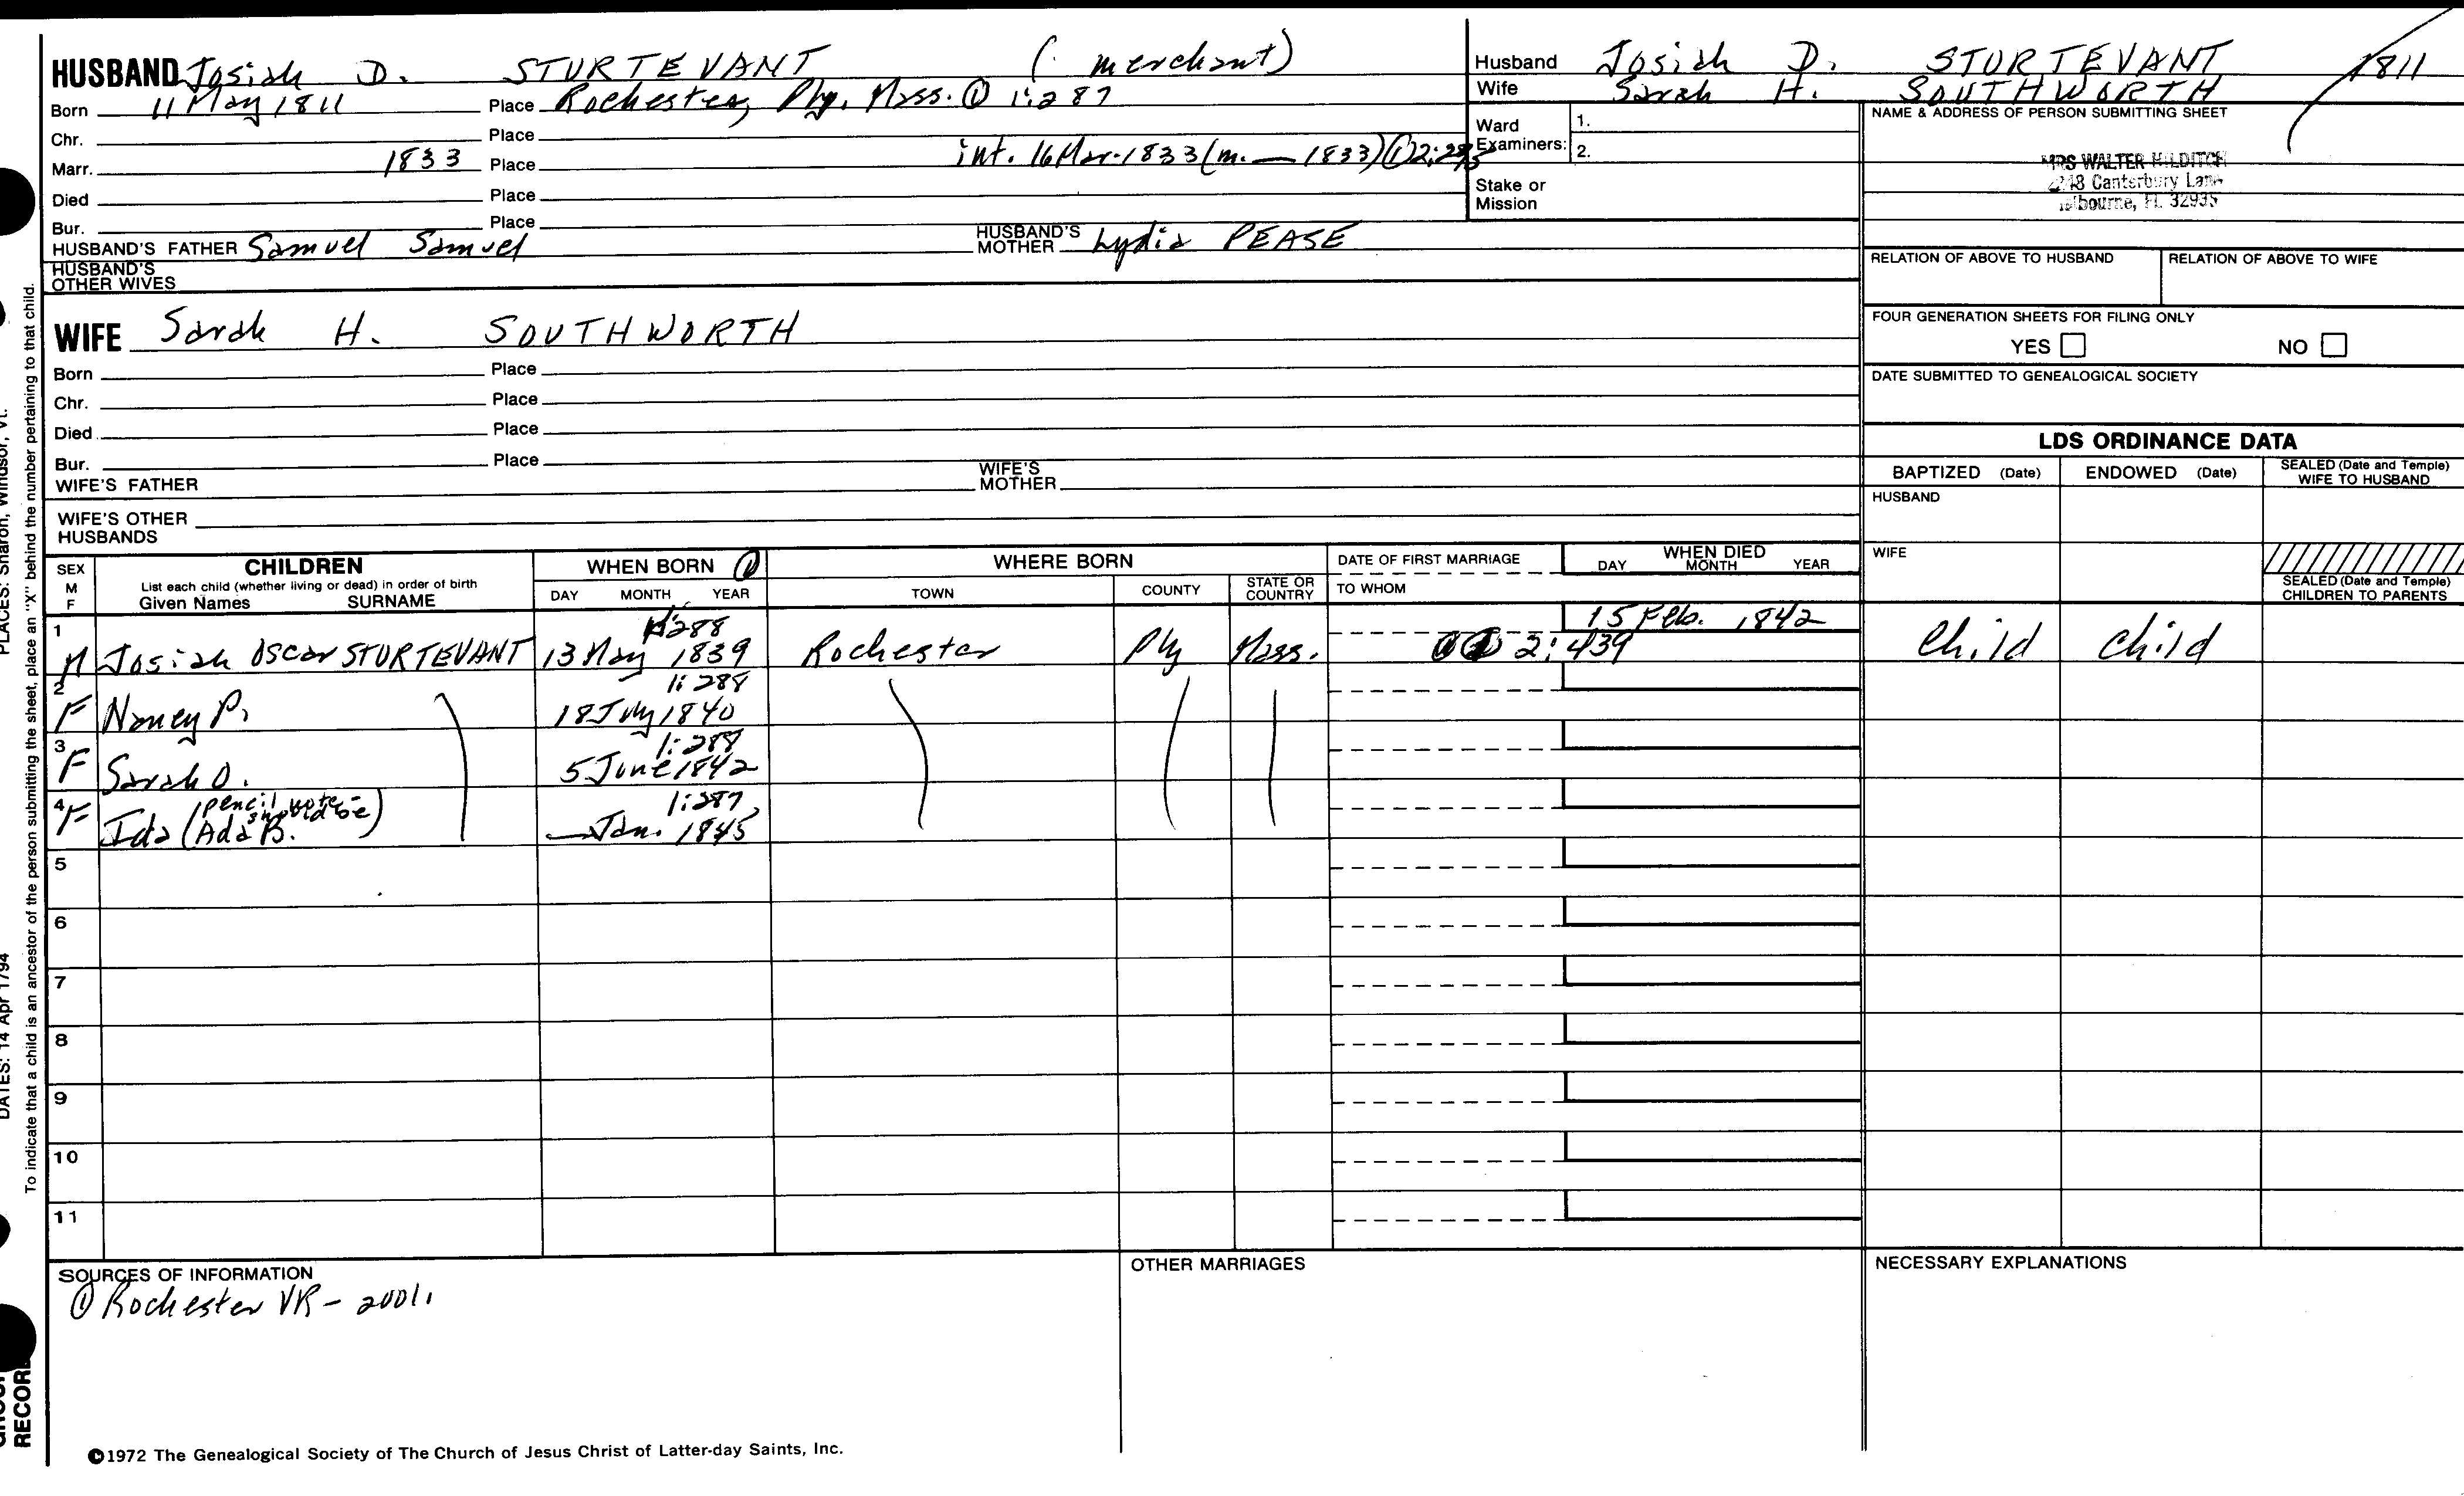 HUSBAND Josiah D. STURTEVANT (merchant)
Born 11 May 1811 Place Rochester, Ply, Mass. ① 1:287
Chr. Place
Marr. 1833 Place int. 16 Mar. 1833 (m. — 1833) ① 2:285
Died Place
Bur. Place
HUSBAND'S FATHER Samuel Samuel HUSBAND'S MOTHER Lydia PEASE
HUSBAND'S
OTHER WIVES
WIFE Sarah H. SOUTHWORTH
Born Place
Chr. Place
Died Place
Bur. Place
WIFE'S FATHER WIFE'S MOTHER
WIFE'S OTHER
HUSBANDS
Husband Josiah D. STURTEVANT 1811
Wife Sarah H. SOUTHWORTH
Ward
Examiners:
1.
2.
Stake or
Mission
NAME & ADDRESS OF PERSON SUBMITTING SHEET
MRS WALTER HILDITCH
Canterbury Lane
FL 32935
RELATION OF ABOVE TO HUSBAND RELATION OF ABOVE TO WIFE
FOUR GENERATION SHEETS FOR FILING ONLY
YES NO
DATE SUBMITTED TO GENEALOGICAL SOCIETY
LDS ORDINANCE DATA
BAPTIZED (Date) ENDOWED (Date) SEALED (Date and Temple)
WIFE TO HUSBAND
HUSBAND
WIFE
SEALED (Date and Temple)
CHILDREN TO PARENTS
SEX
M
F
CHILDREN
List each child (whether living or dead) in order of birth
Given Names SURNAME
WHEN BORN ①
DAY MONTH YEAR
WHERE BORN
TOWN COUNTY STATE OR
COUNTRY
DATE OF FIRST MARRIAGE
TO WHOM
WHEN DIED
DAY MONTH YEAR
1 1:288 15 Feb. 1842
M Josiah Oscar STURTEVANT 13 May 1839 Rochester Ply Mass. 2:439 Child Child
2 1:288
F Nancy P. 18 July 1840
3 1:288
F Sarah O. 5 June 1842
4 (pencil note - should be 1:287
F Ida (Ada B.) — Jan. 1845
5
6
7
8
9
10
11
SOURCES OF INFORMATION
① Rochester VR - 2001.
OTHER MARRIAGES
NECESSARY EXPLANATIONS
©1972 The Genealogical Society of The Church of Jesus Christ of Latter-day Saints, Inc.
To indicate that a child is an ancestor of the person submitting the sheet, place an "X" behind the number pertaining to that child.
PLACES: Sharon, Windsor, Vt.
DATES: 14 Apr 1794
RECORD